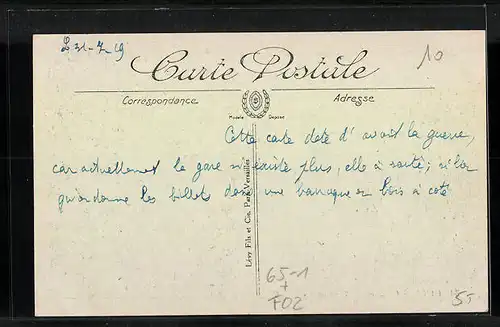 31-7-19
10
Carte Postale
Correspondance
Adresse
Modèle Déposé
Cette carte date d'avant la guerre,
car actuellement la gare n'existe plus, elle a sauté; si l'on
donne les billets dans une baraque en bois à côté
Lévy Fils et Cie, Paris-Versailles
65-1
+
F02